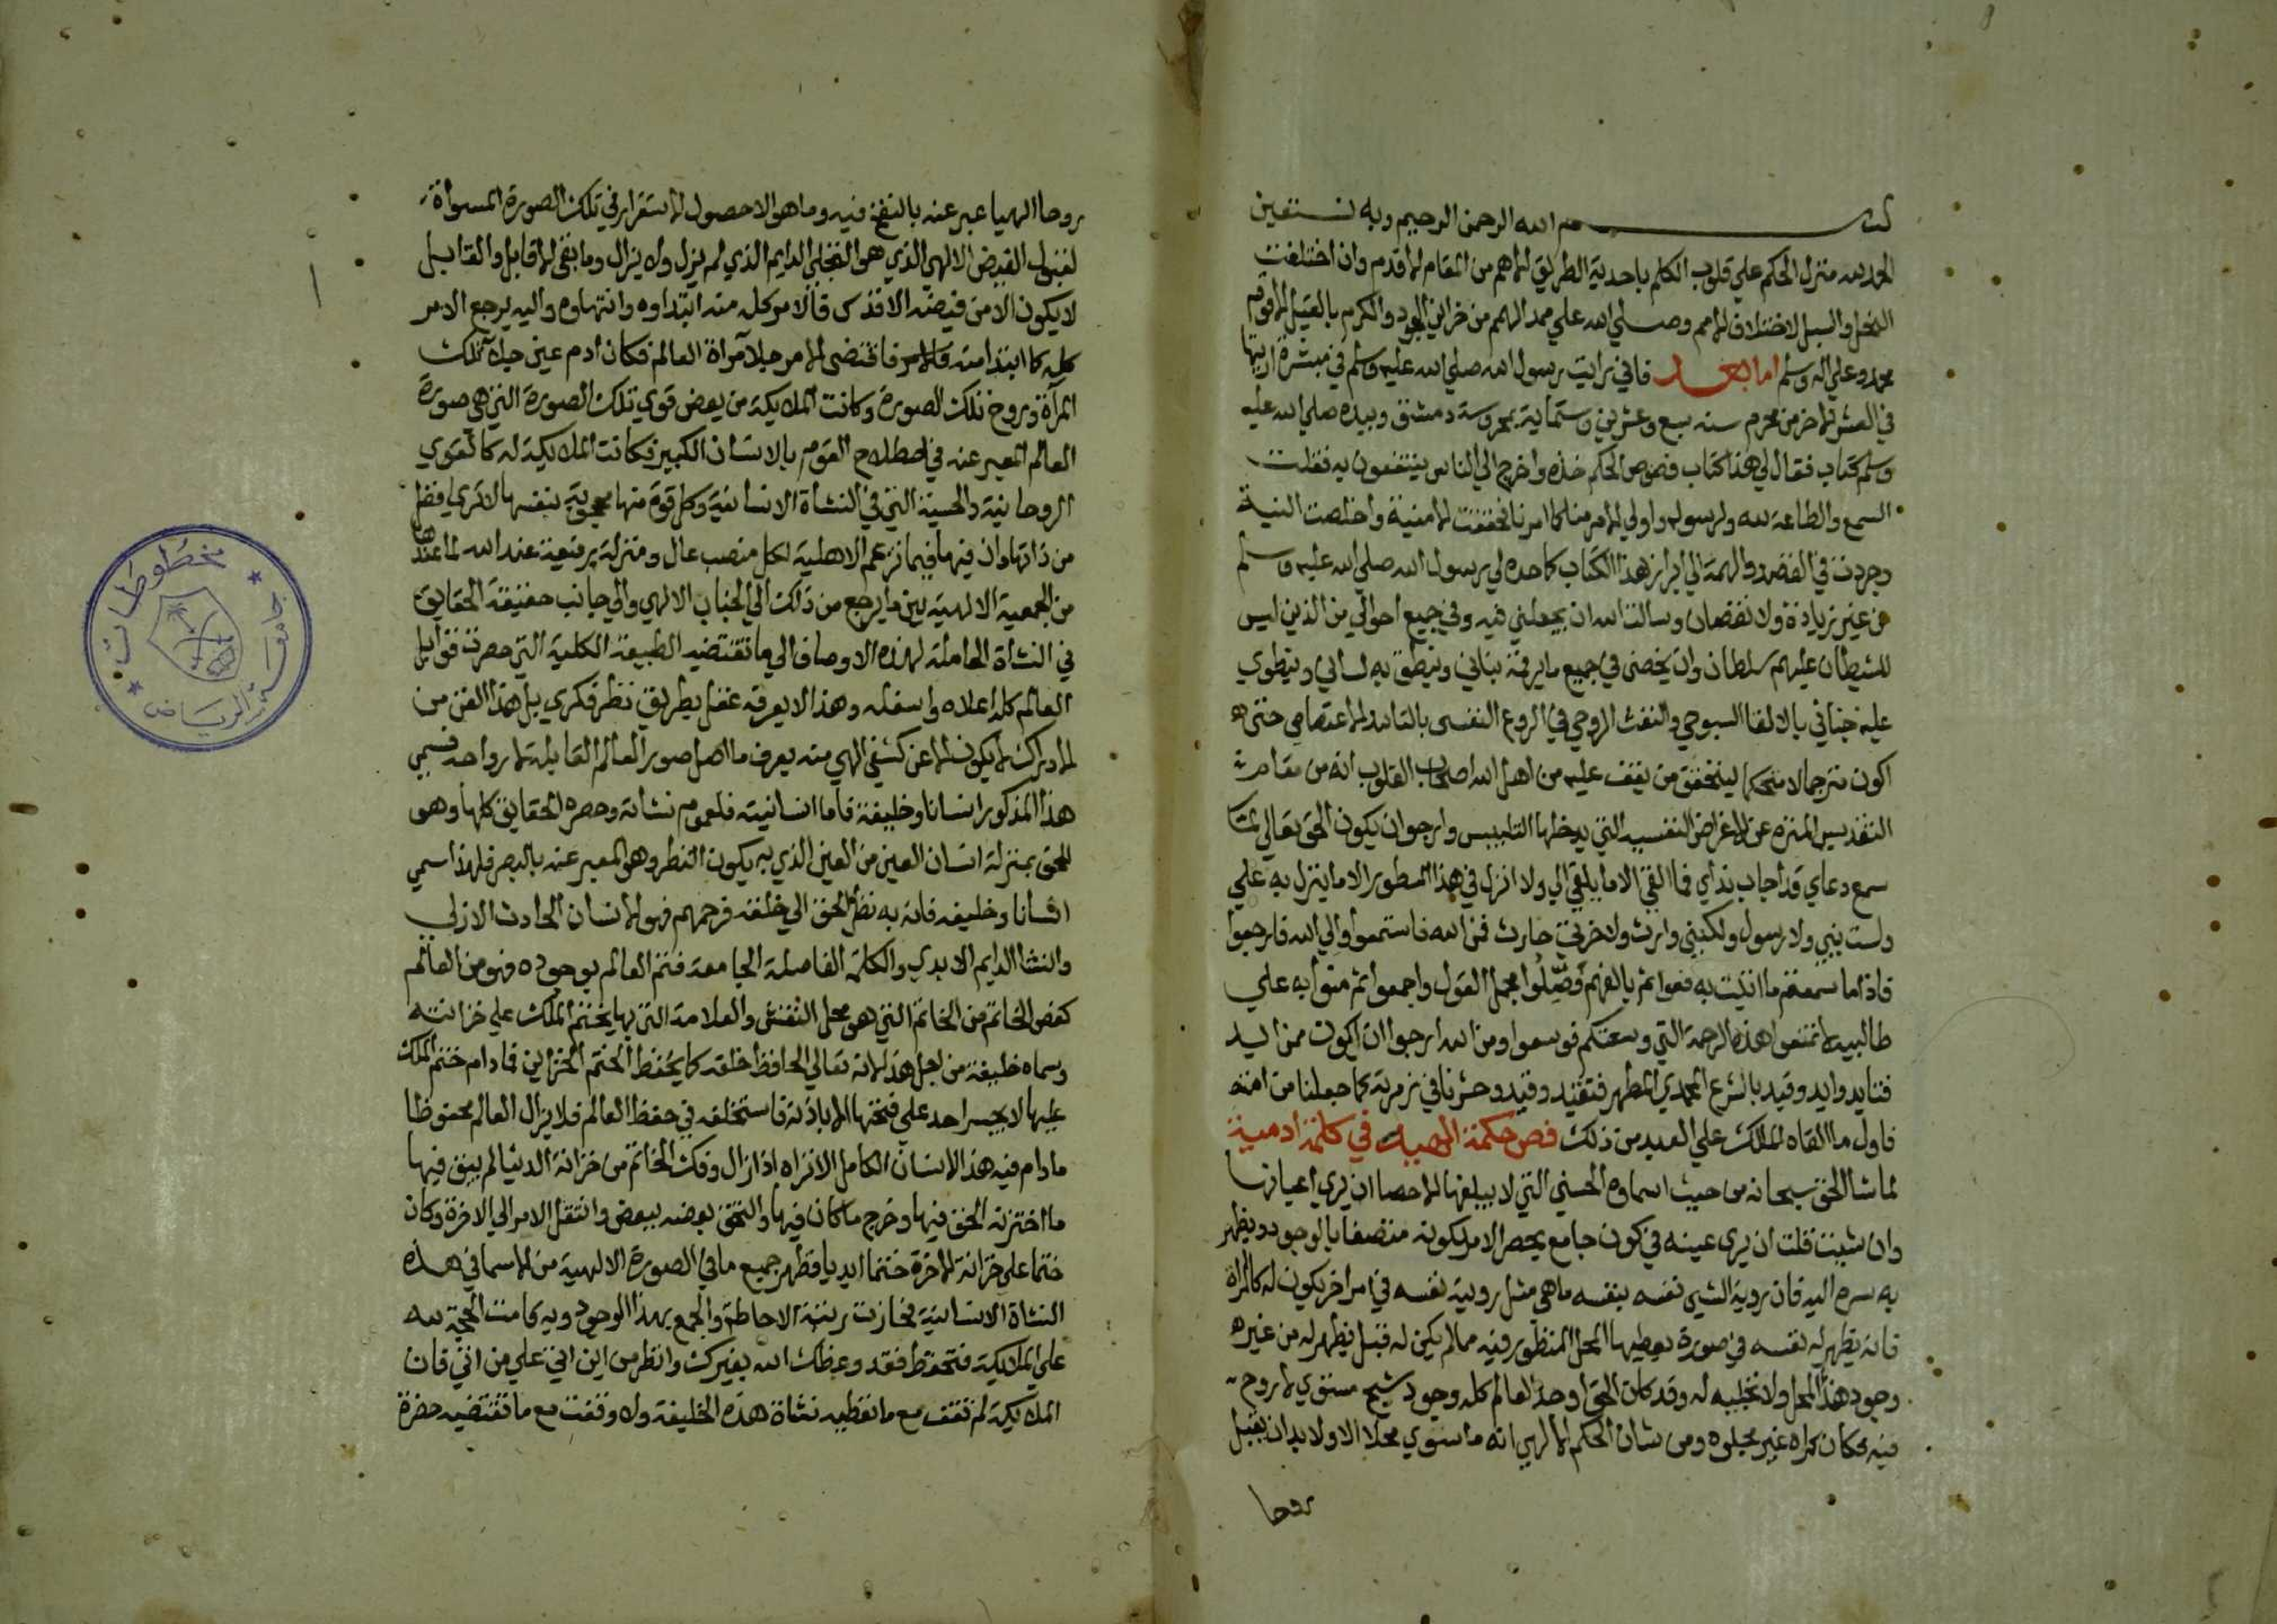 بسم الله الرحمن الرحيم وبه نستعين
الحمد لله منزل الحكم علي قلوب الكلم باحدية الطريق الامم من المقام الاقدم وان اختلفت
النحل والملل لاختلاف الامم وصلي الله علي ممد الهمم من خزاين الجود والكرم بالقيل الاقوم
محمد وعلي اله وسلم اما بعد فاني رايت رسول الله صلي الله عليه وسلم في مبشرة اريتها
في العشر الاخر من محرم سنه سبع وعشرين وستماية بمحروسة دمشق وبيده صلي الله عليه
وسلم كتاب فقال لي هذا كتاب فصوص الحكم خذه واخرج الي الناس ينتفعون به فقلت
السمع والطاعة لله ولرسوله واولي الامر منا كما امرنا فحققت الامنية واخلصت النية
وجردت في القصد والهمة الي ابراز هذا الكتاب كما حده لي رسول الله صلي الله عليه وسلم
من غير زيادة ولا نقصان وسالت الله ان يجعلني فيه وفي جميع احوالي من الذين ليس
للشيطان عليهم سلطان وان يخصني في جميع ما يرقمه بناني وينطق به لساني وينطوي
عليه جناني بالالقا السبوحي والنفث الروحي في الروع النفسي بالتاييد الاعتصامي حتي
اكون مترجما لا متحكما ليتحقق من يقف عليه من اهل الله اصحاب القلوب انه من مقام
التقديس المنزه عن الاغراض النفسيه التي يدخلها التلبيس وارجو ان يكون الحق تعالي لما
سمع دعاي قد اجاب نداي فما القي الا ما يلقي الي ولا انزل في هذا المسطور الا ما ينزل به علي
ولست بنبي ولا رسول ولكنني وارث ولاخرتي حارث فمن الله فاستمعوا والي الله فارجعوا
فاذا ما سمعتم ما اتيت به فعوا ثم بالفهم فصلوا مجمل القول واجمعوا ثم منوا به علي
طالبيه لا تمنعوا هذه الرحمة التي وسعتكم فوسعوا ومن الله ارجوا ان اكون ممن ايد
فتايد وايد وقيد بالشرع المحمدي المطهر فتقيد وقيد وحشرنا في زمرته كما جعلنا من امته
فاول ما القاه المالك علي العبد من ذلك فص حكمة الهية في كلمة ادمية
لما شا الحق سبحانه من حيث اسماوه الحسني التي لا يبلغها الاحصا ان يري اعيانها
وان شيت قلت ان يري عينه في كون جامع يحصر الامر لكونه متصفا بالوجود ويظهر
به سره اليه فان روية الشي نفسه بنفسه ما هي مثل روية نفسه في امر اخر يكون له كالمراة
فانه يظهر له نفسه في صورة يعطيها المحل المنظور فيه مما لم يكن له قبل فيظهر له من غيره
وجود هذا المحل ولا تجليه له وقد كان الحق اوجد العالم كله وجود شبح مستوي لا روح
فيه فكان كمراه غير مجلوه ومن شان الحكم الالهي انه ما سوي محلا الا ولا بد ان يقبل
روحا
روحا الهيا عبر عنه بالنفخ فيه وما هو الا حصول الاستقرار في تلك الصورة المسواة
لقبول الفيض الالهي الذي هو التجلي الدايم الذي لم يزل ولا يزال وما بقي الا قابل والقابل
لا يكون الا من فيضه الاقدس فالامر كله منه ابتداوه وانتهاوه واليه يرجع الامر
كله كما ابتدا منه فاقتضي الامر جلا مراة العالم فكان ادم عين جلا تلك
المراة وروح تلك الصورة وكانت الملايكة من بعض قوي تلك الصورة التي هي صورة
العالم المعبر عنه في اصطلاح القوم بالانسان الكبير فكانت الملايكة له كالقوي
الروحانية والحسية التي في النشاة الانسانية وكل قوة منها محجوبة بنفسها لا تري افضل
من ذاتها وان فيها فيما تزعم الاهلية لكل منصب عال ومنزلة رفيعة عند الله لما عندها
من الجمعية الالهية بين ما يرجع من ذلك الي الجناب الالهي والي جانب حقيقة الحقايق
في النشاة الحاملة لهذه الاوصاف الي ما تقتضيه الطبيعة الكلية التي حصرت قوابل
العالم كله اعلاه واسفله وهذا لا يعرفه عقل بطريق نظر فكري بل هذا الفن من
الادراك لا يكون الا عن كشف الهي منه يعرف ما اصل صور العالم القابلة لارواحه فسمي
هذا المذكور انسانا وخليفة فاما انسانيته فلعموم نشاته وحصره الحقايق كلها وهو
للحق بمنزلة انسان العين من العين الذي به يكون النظر وهو المعبر عنه بالبصر فلهذا سمي
انسانا وخليفه فانه به نظر الحق الي خلقه فرحمهم فهو الانسان الحادث الازلي
والنشا الدايم الابدي والكلمة الفاصلة الجامعة فتم العالم بوجوده فهو من العالم
كفص الخاتم من الخاتم التي هو محل النقش والعلامة التي بها يختم الملك علي خزانته
وسماه خليفة من اجل هذا لانه تعالي الحافظ خلقه كما يحفظ الختم الخزاين فما دام ختم الملك
عليها لا يجسر احد علي فتحها الا باذنه فاستخلفه في حفظ العالم فلا يزال العالم محفوظا
ما دام فيه هذا الانسان الكامل الا تراه اذا زال وفك الخاتم من خزانة الدنيا لم يبق فيها
ما اختزنه الحق فيها وخرج ما كان فيها والتحق بعضه ببعض وانتقل الامر الي الاخرة وكان
ختما علي خزانة الاخرة ختما ابديا فظهر جميع ما في الصورة الالهية من الاسما في هذه
النشاة الانسانية فحازت رتبة الاحاطة والجمع بهذا الوجود وبه قامت الحجة لله
علي الملايكة فتحفظ فقد وعظك الله بغيرك وانظر من اين اتي علي من اتي فان
الملايكة لم تقف مع ما تعطيه نشاة هذه الخليفة ولا وقفت مع ما تقتضيه حضرة
١
مخطوطات
جامعة الرياض